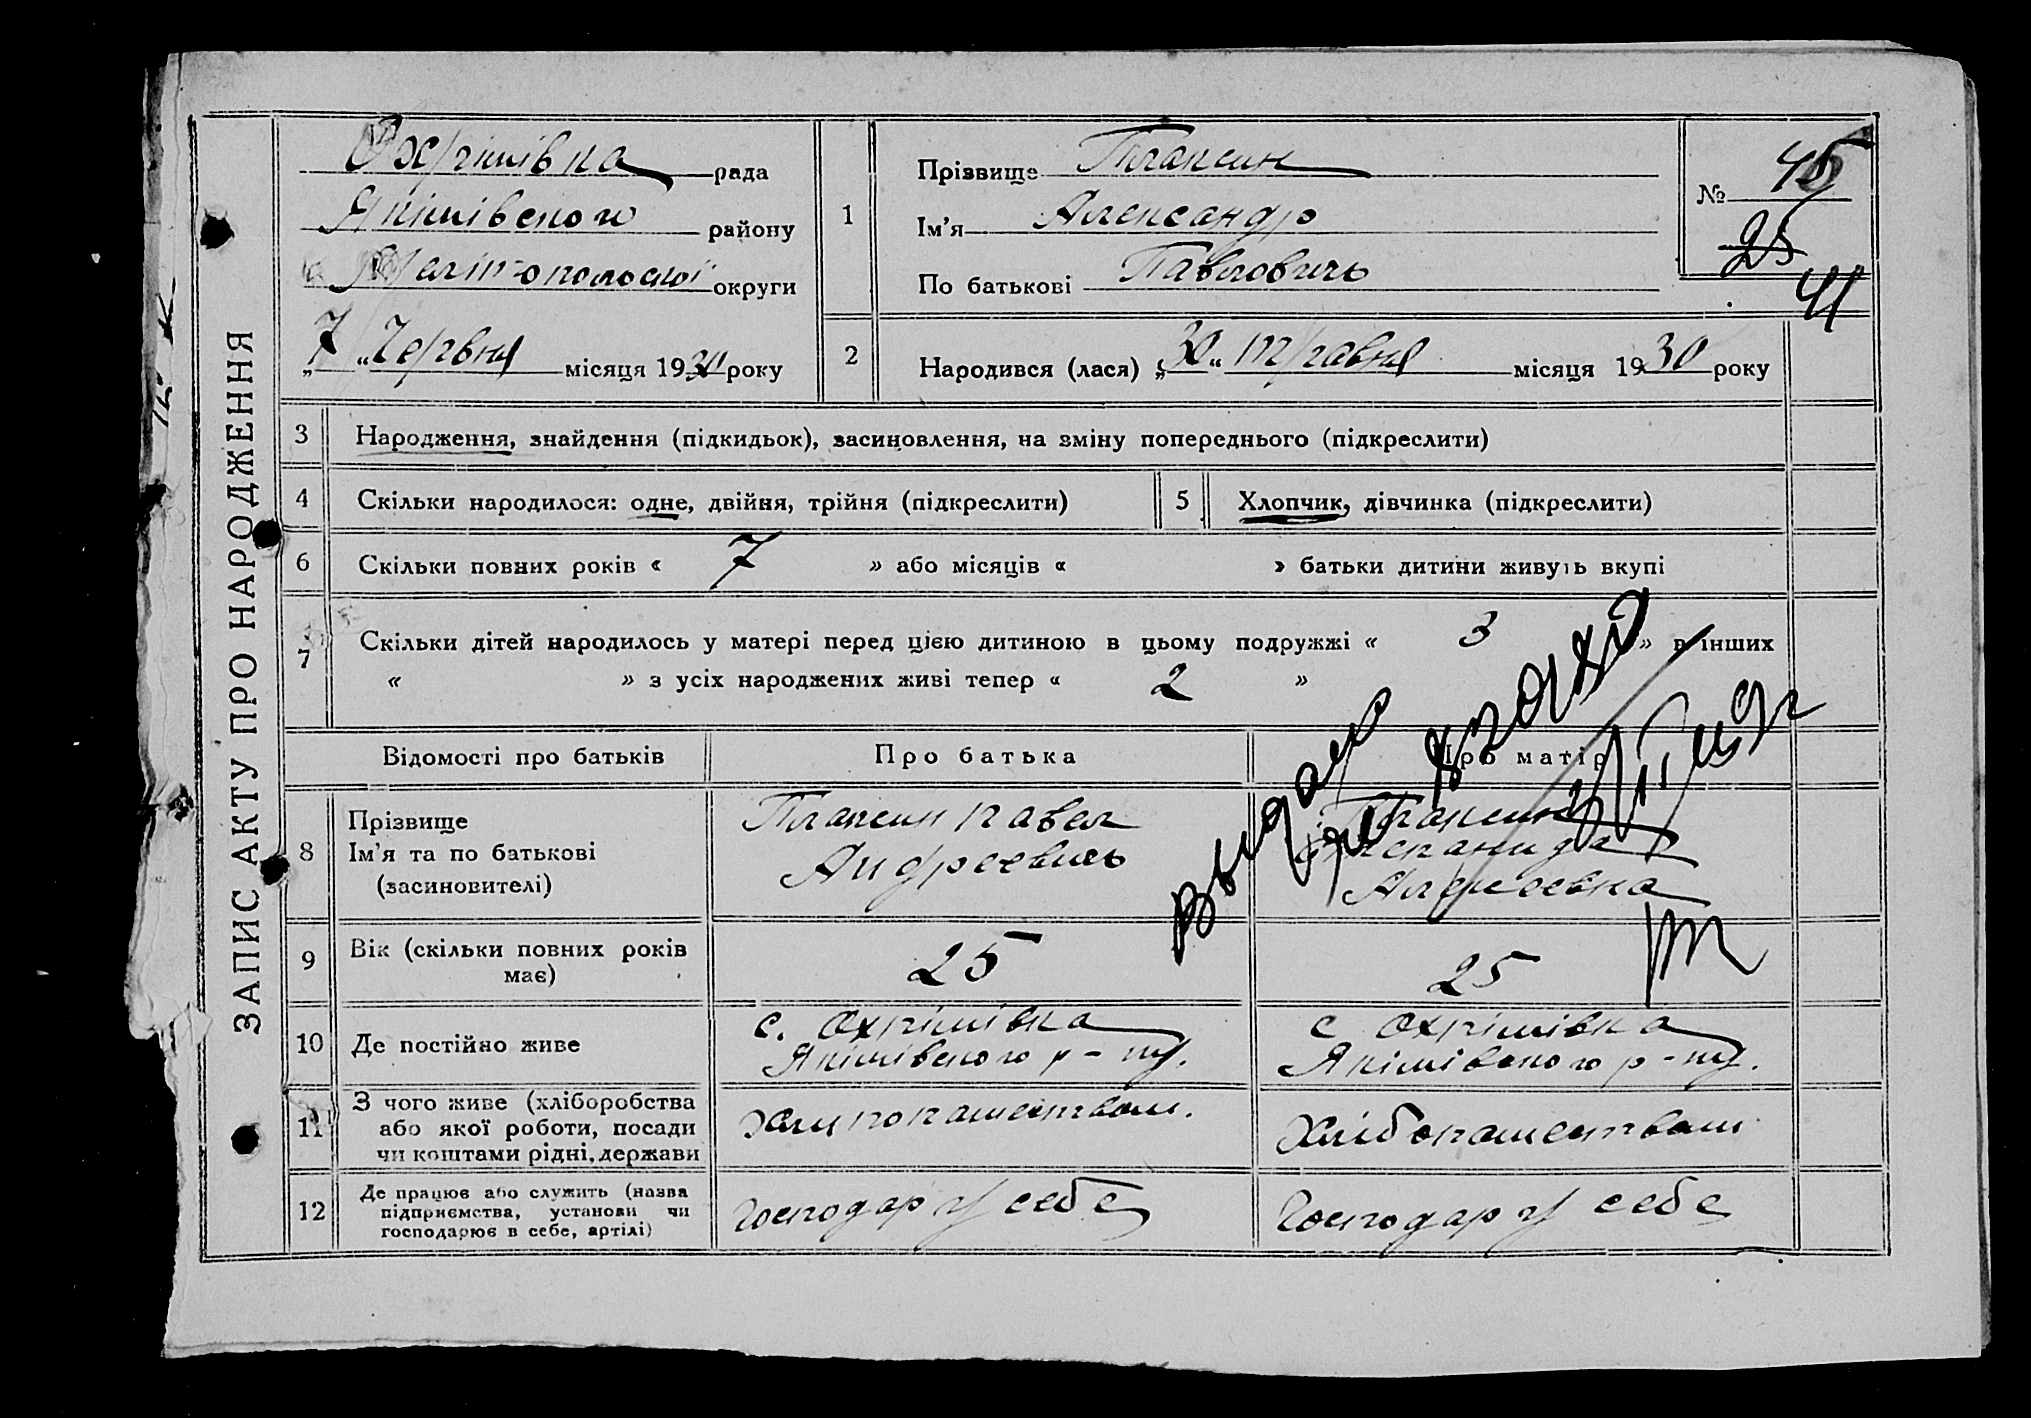 ЗАПИС АКТУ ПРО НАРОДЖЕННЯ
Охрімівка рада
Якимівського району
Мелітопольської округи
„7“ червня місяця 1930 року
1
Прізвище Плаксин
Ім'я Александр
По батькові Павловичь
№ 45
25
41
2
Народився (лася) „30“ травня місяця 1930 року
3 Народження, знайдення (підкидьок), засиновлення, на зміну попереднього (підкреслити)
4 Скільки народилося: одне, двійня, трійня (підкреслити) 5 Хлопчик, дівчинка (підкреслити)
6 Скільки повних років « 7 » або місяців « » батьки дитини живуть вкупі
7 Скільки дітей народилось у матері перед цією дитиною в цьому подружжі « 3 » в інших
« » з усіх народжених живі тепер « 2 »
Відомості про батьків Про батька Про матір
8 Прізвище
Ім'я та по батькові
(засиновителі)
Плаксин Павел
Андреевичь
Плаксин
Алексеевна
9 Вік (скільки повних років
має)
25 25
10 Де постійно живе
с. Охрімівка
Якімівського р-ну.
с Охрімівка
Якімівського р-ну.
11 З чого живе (хліборобства
або якої роботи, посади
чи коштами рідні, держави
Хлібопашеством
12 Де працює або служить (назва
підприємства, установи чи
господарює в себе, артілі)
Господар у себе Господар у себе